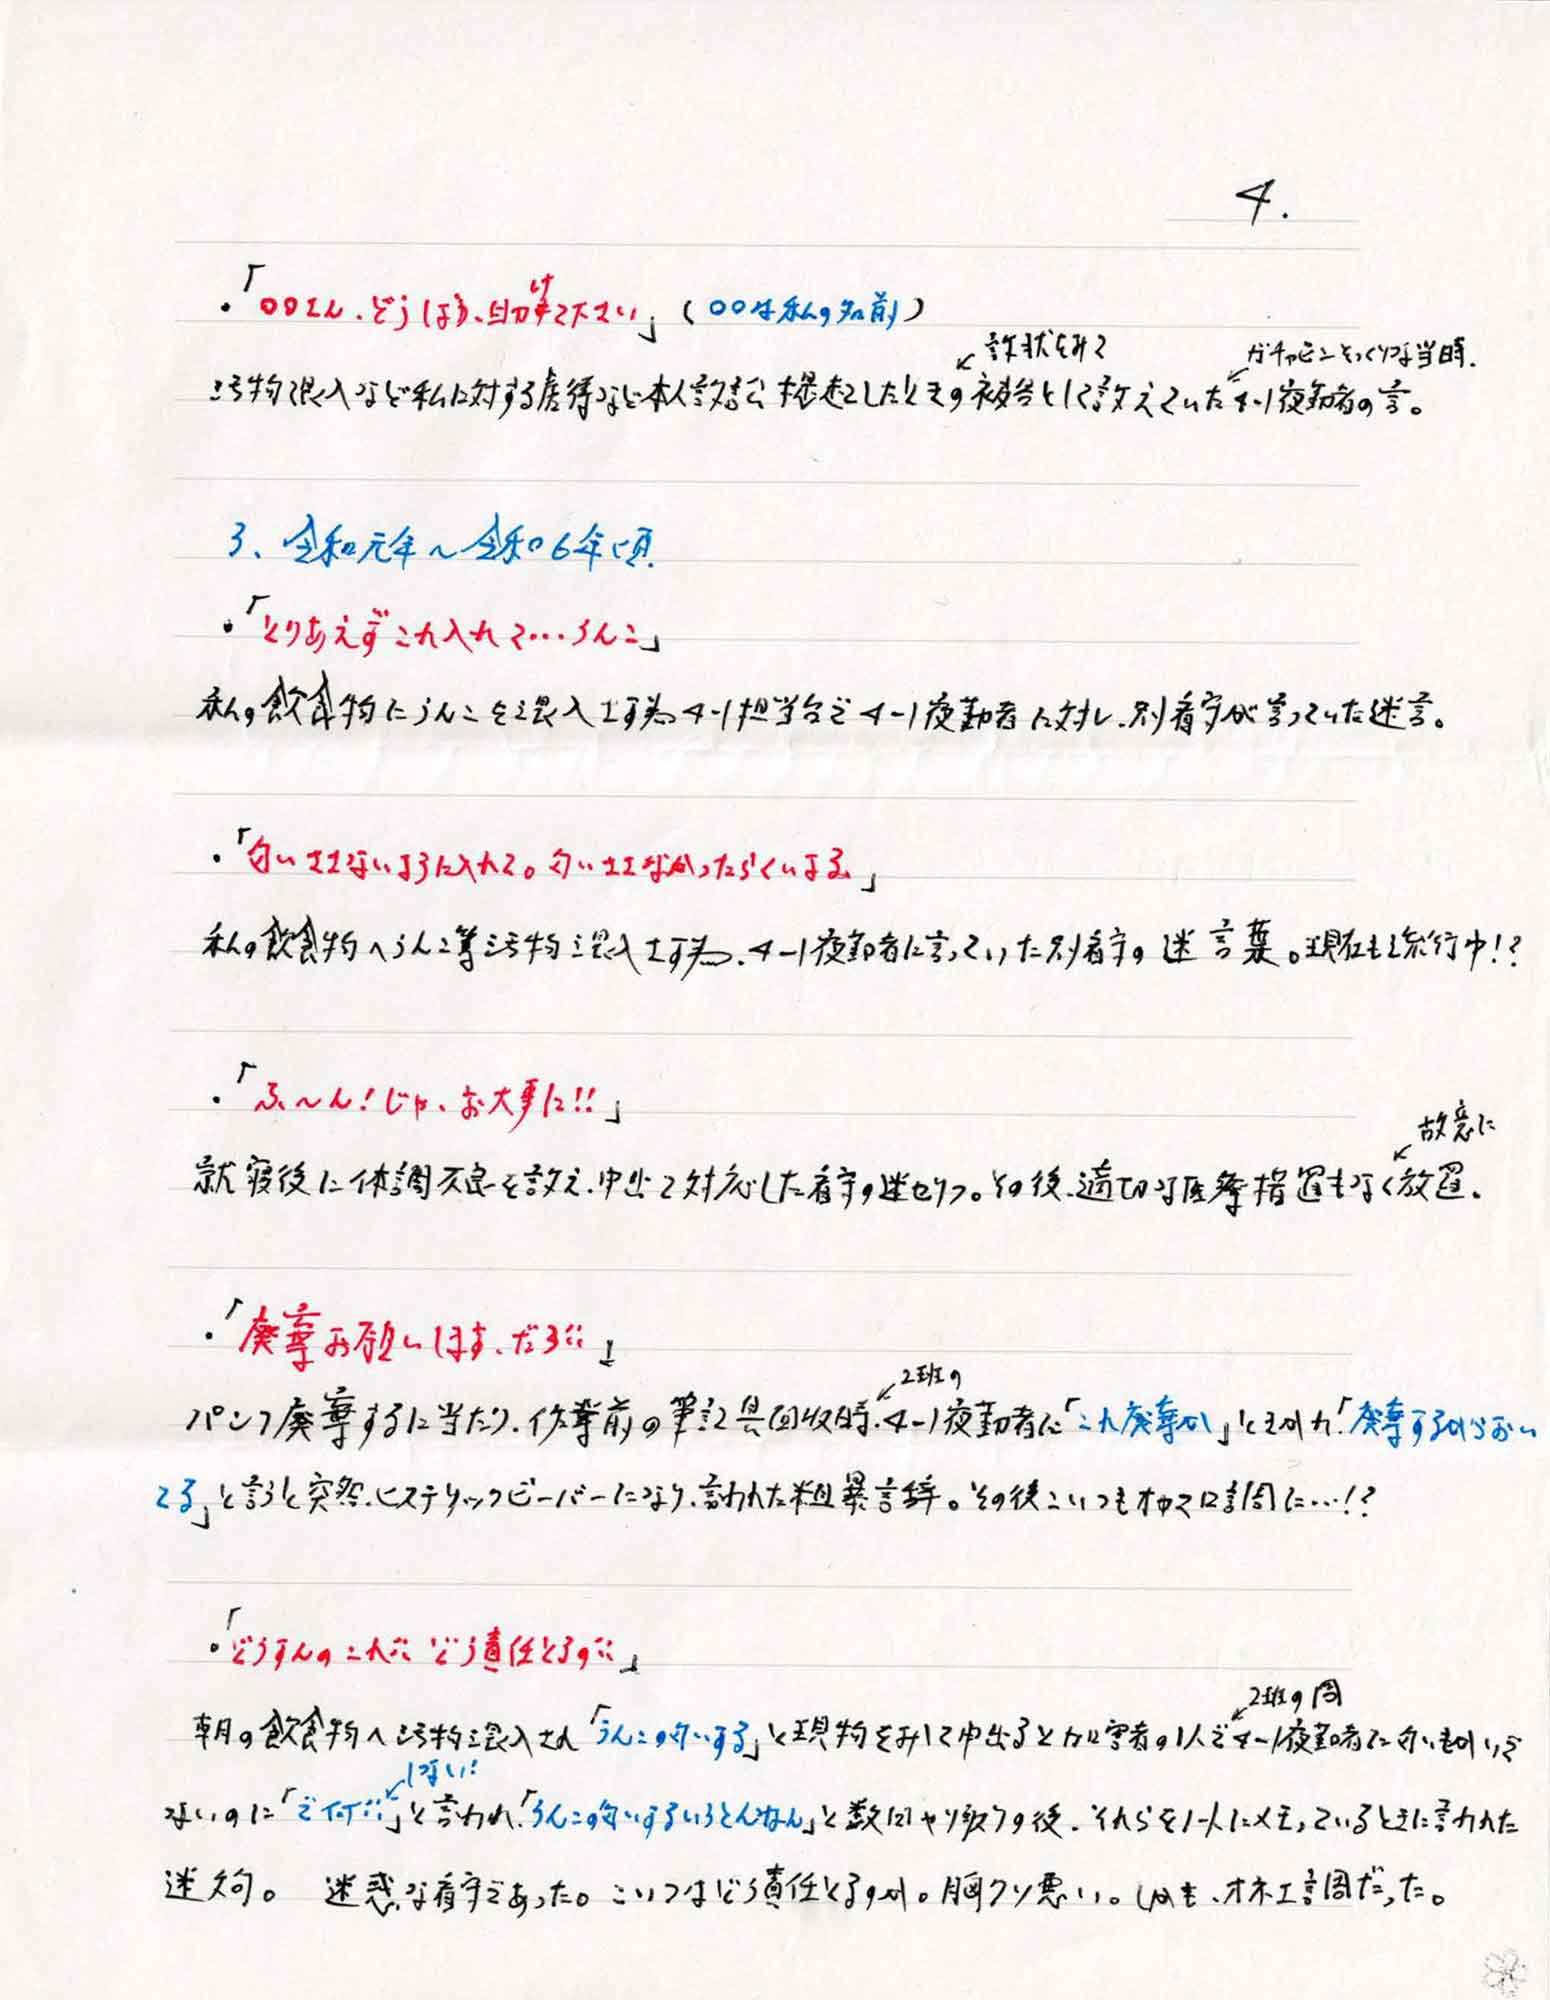 4.
・「〇〇さん、どうしよう、助けて下さい」(〇〇は私の名前)
訴状をみて
ガチャピンそっくりな当時。
汚物混入など私に対する虐待など本人訴訟 提起したときの被告として訴えていた4-1夜勤者の言。
3、令和元年〜令和6年頃
・「とりあえずこれ入れて…うんこ」
私の飲食物にうんこを混入する為4-1担当台で4-1夜勤者に対し、別看守が言っていた迷言。
・「匂いさせないように入れて。匂いさせなかったらくいよる。」
私の飲食物へうんこ等汚物混入する為、4-1夜勤者に言っていた別看守の迷言葉。現在も流行中!?
・「ふ〜ん!じゃ、お大事に!!」
故意に
就寝後に体調不良を訴え、申出て対応した看守の迷セリフ。その後、適切な医療措置もなく放置。
・「廃棄お願いします、だろ!!」
2班の
パンフ廃棄するに当たり、作業前の筆記具回収時、4-1夜勤者に「これ廃棄か」ときかれ「廃棄するからおい
てる」と言うと突然、ヒステリックビーバーになり、言われた粗暴言辞。その後こいつもオカマ口調に…!?
・「どうすんのこれ!! どう責任とるの!!」
2班の同
朝の飲食物へ汚物混入され「うんこの匂いする」と現物をみして申出ると加害者の1人で4-1夜勤者に匂いもかいで
しない!
ないのに「で何!!」と言われ、「うんこの匂いするいうとんねん」と数回やり取りの後、それらを1人にメモっているときに言われた
迷文句。 迷惑な看守であった。こいつはどう責任とるのか。胸クソ悪い。しかも、オネエ言調だった。